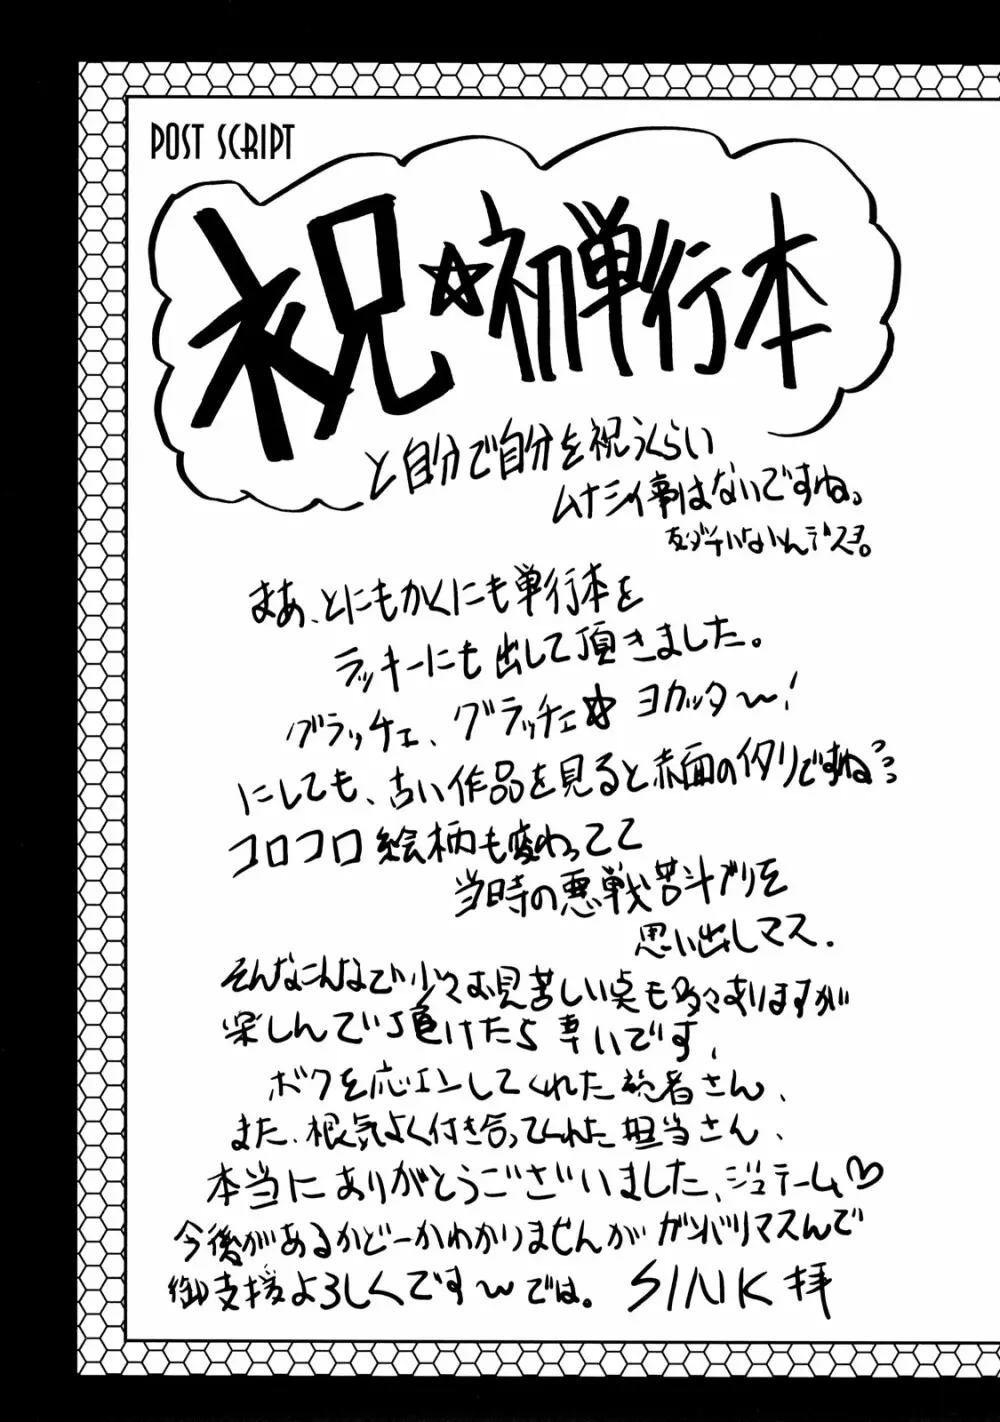 POST SCRIPT
祝☆初単行本
と自分で自分を祝うくらい
ムナシイ事はないですね。
まあ、とにもかくにも単行本を
ラッキーにも出して頂きました。
グラッチェ、グラッチェ☆ ヨカッタ〜!
にしても、古い作品を見ると赤面のイタリですね…
コロコロ絵柄も変わってて
当時の悪戦苦斗ブリを
思い出しマス.
そんなこんなで少々お見苦しい点も多々ありますが
楽しんで頂けたら幸いです、
ボクを応エンしてくれた読者さん、
また、根気よく付き合ってくれた担当さん、
本当にありがとうございました、ジュテーム♡
今後があるかどーかわかりませんがガンバリマスんで
御支援よろしくです〜では。 SINK 拝